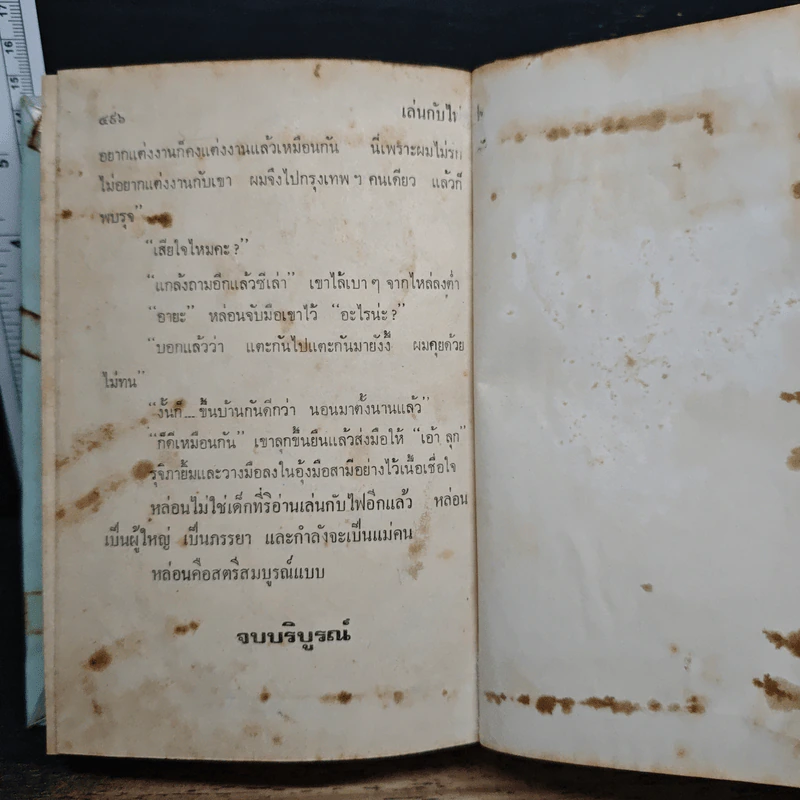 ๔๙๖ เล่นกับไฟ
อยากแต่งงานก็คงแต่งงานแล้วเหมือนกัน นี่เพราะผมไม่รก
ไม่อยากแต่งงานกับเขา ผมจึงไปกรุงเทพ ฯ คนเดียว แล้วก็
พบรุจ”
“เสียใจไหมคะ?”
“แกล้งถามอีกแล้วซีเล่า” เขาไล้เบา ๆ จากไหล่ลงต่ำ
“อายะ” หล่อนจับมือเขาไว้ “อะไรน่ะ?”
“บอกแล้วว่า แตะกันไปแตะกันมายังงี้ ผมคุยด้วย
ไม่ทน”
“งั้นก็....ขึ้นบ้านกันดีกว่า นอนมาตั้งนานแล้ว”
“ก็ดีเหมือนกัน” เขาลุกขึ้นยืนแล้วส่งมือให้ “เอ้า ลุก”
รุจิภายิ้มและวางมือลงในอุ้งมือสามีอย่างไว้เนื้อเชื่อใจ
หล่อนไม่ใช่เด็กที่ริอ่านเล่นกับไฟอีกแล้ว หล่อน
เป็นผู้ใหญ่ เป็นภรรยา และกำลังจะเป็นแม่คน
หล่อนคือสตรีสมบูรณ์แบบ
จบบริบูรณ์
5
15
16
17